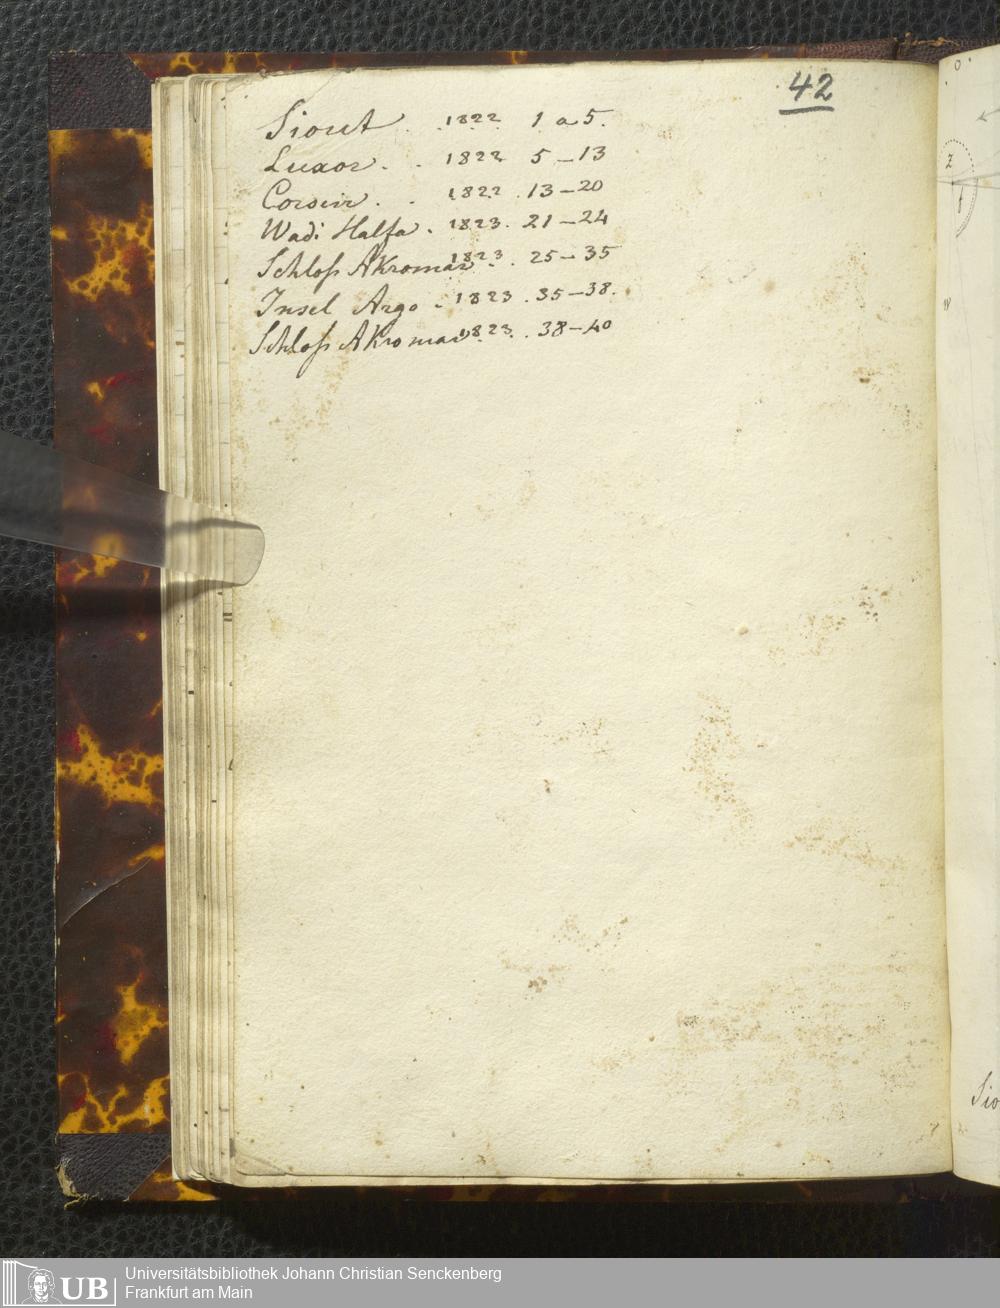 42
Siout . . 1822. 1 a 5.
Luxor . . 1822 5–13
Cosseir . . 1822 . 13–20
Wadi Halfa . 1823. 21–24
Schloß Akromar 1823 . 25–35
Insel Argo . 1823 . 35–38.
Schloß Akromar 1823 . 38–40
Sio
UB
Universitätsbibliothek Johann Christian Senckenberg
Frankfurt am Main